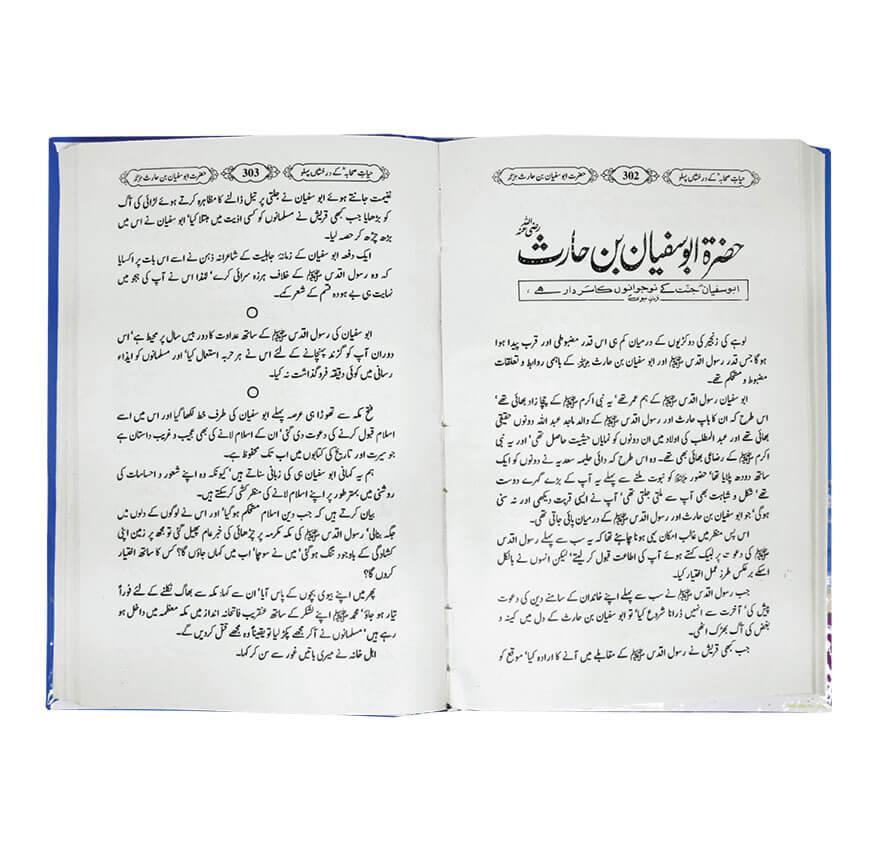 حیاتِ صحابہؓ کے درخشاں پہلو
302
حضرت ابو سفیان بن حارث رضی اللہ عنہ
حضرۃ ابو سفیان بن حارث رضی اللہ عنہ
ابوسفیان جنت کے نوجوانوں کا سردار ہے ،
فرمانِ نبویؐ
لوہے کی زنجیر کی دو کڑیوں کے درمیان کم ہی اس قدر مضبوطی اور قرب پیدا ہوا
ہوگا جس قدر رسول اقدس ﷺ اور ابو سفیان بن حارث رضی اللہ عنہ کے باہمی روابط و تعلقات
مضبوط و مستحکم تھے۔
ابو سفیان رسول اقدس ﷺ کے ہم عمر تھے‘ یہ نبی اکرم ﷺ کے چچا زاد بھائی تھے‘
اس طرح کہ ان کا باپ حارث اور رسول اقدس ﷺ کے والد ماجد عبد اللہ دونوں حقیقی
بھائی تھے اور عبد المطلب کی اولاد میں ان دونوں کو نمایاں حیثیت حاصل تھی‘ اور یہ نبی
اکرم ﷺ کے رضاعی بھائی بھی تھے۔ وہ اس طرح کہ دائی حلیمہ سعدیہ نے دونوں کو ایک
ساتھ دودھ پلایا تھا‘ حضور ﷺ کو نبوت ملنے سے پہلے یہ آپ کے بڑے گہرے دوست
تھے‘ شکل و شباہت بھی آپ سے ملتی جلتی تھی‘ آپ نے ایسی قربت دیکھی اور نہ سنی
ہوگی‘ جو ابو سفیان بن حارث اور رسول اقدس ﷺ کے درمیان پائی جاتی تھی۔
اس پس منظر میں غالب امکان یہی ہونا چاہئے تھا کہ یہ سب سے پہلے رسول اقدس
ﷺ کی دعوت پر لبیک کہتے ہوئے آپ کی اطاعت قبول کر لیتے‘ لیکن انہوں نے بالکل
اسکے برعکس طرز عمل اختیار کیا۔
جب رسول اقدس ﷺ نے سب سے پہلے اپنے خاندان کے سامنے دین کی دعوت
پیش کی‘ آخرت سے انہیں ڈرانا شروع کیا‘ تو ابو سفیان بن حارث کے دل میں کینہ و
بغض کی آگ بھڑک اٹھی۔
جب کبھی قریش نے رسول اقدس ﷺ کے مقابلے میں آنے کا ارادہ کیا‘ موقع کو
حیاتِ صحابہؓ کے درخشاں پہلو
303
حضرت ابو سفیان بن حارث رضی اللہ عنہ
غنیمت جانتے ہوئے ابو سفیان نے جلتی پر تیل ڈالنے کا مظاہرہ کرتے ہوئے لڑائی کی آگ
کو بڑھایا جب کبھی قریش نے مسلمانوں کو کسی اذیت میں مبتلا کیا‘ ابو سفیان نے اس میں
بڑھ چڑھ کر حصہ لیا۔
ایک دفعہ ابو سفیان کے زمانۂ جاہلیت کے شاعرانہ ذہن نے اسے اس بات پر اکسایا
کہ وہ رسول اقدس ﷺ کے خلاف ہرزہ سرائی کرے‘ لہٰذا اس نے آپ کی ہجو میں
نہایت ہی بے ہودہ قسم کے شعر کہے۔
ابو سفیان کی رسول اقدس ﷺ کے ساتھ عداوت کا دور بیس سال پر محیط ہے‘ اس
دوران آپ کو گزند پہنچانے کے لئے اس نے ہر حربہ استعمال کیا‘ اور مسلمانوں کو ایذاء
رسانی میں کوئی دقیقہ فروگذاشت نہ کیا۔
فتح مکہ سے تھوڑا ہی عرصہ پہلے ابو سفیان کی طرف خط لکھا گیا اور اس میں اسے
اسلام قبول کرنے کی دعوت دی گئی‘ ان کے اسلام لانے کی بھی عجیب و غریب داستان ہے
جو سیرت اور تاریخ کی کتابوں میں اب تک محفوظ ہے۔
ہم یہ کہانی ابو سفیان ہی کی زبانی سناتے ہیں‘ کیونکہ وہ اپنے شعور و احساسات کی
روشنی میں بہتر طور پر اپنے اسلام لانے کی منظر کشی کرسکتے ہیں۔
بیان کرتے ہیں کہ جب دین اسلام مستحکم ہوگیا‘ اور اس نے لوگوں کے دلوں میں
جگہ بنالی‘ رسول اقدس ﷺ کی مکہ مکرمہ پر چڑھائی کی خبر عام پھیل گئی تو مجھ پر زمین اپنی
کشادگی کے باوجود تنگ ہوگئی‘ میں نے سوچا‘ اب میں کہاں جاؤں گا؟ کس کا ساتھ اختیار
کروں گا؟
پھر میں اپنے بیوی بچوں کے پاس آیا‘ ان سے کہا: مکہ سے بھاگ نکلنے کے لئے فوراً
تیار ہو جاؤ‘ محمد ﷺ اپنے لشکر کے ساتھ عنقریب فاتحانہ انداز میں مکہ معظمہ میں داخل ہو
رہے ہیں‘ مسلمانوں نے آکر مجھے پکڑ لیا تو یقیناً وہ مجھے قتل کردیں گے۔
اہل خانہ نے میری باتیں غور سے سن کر کہا۔